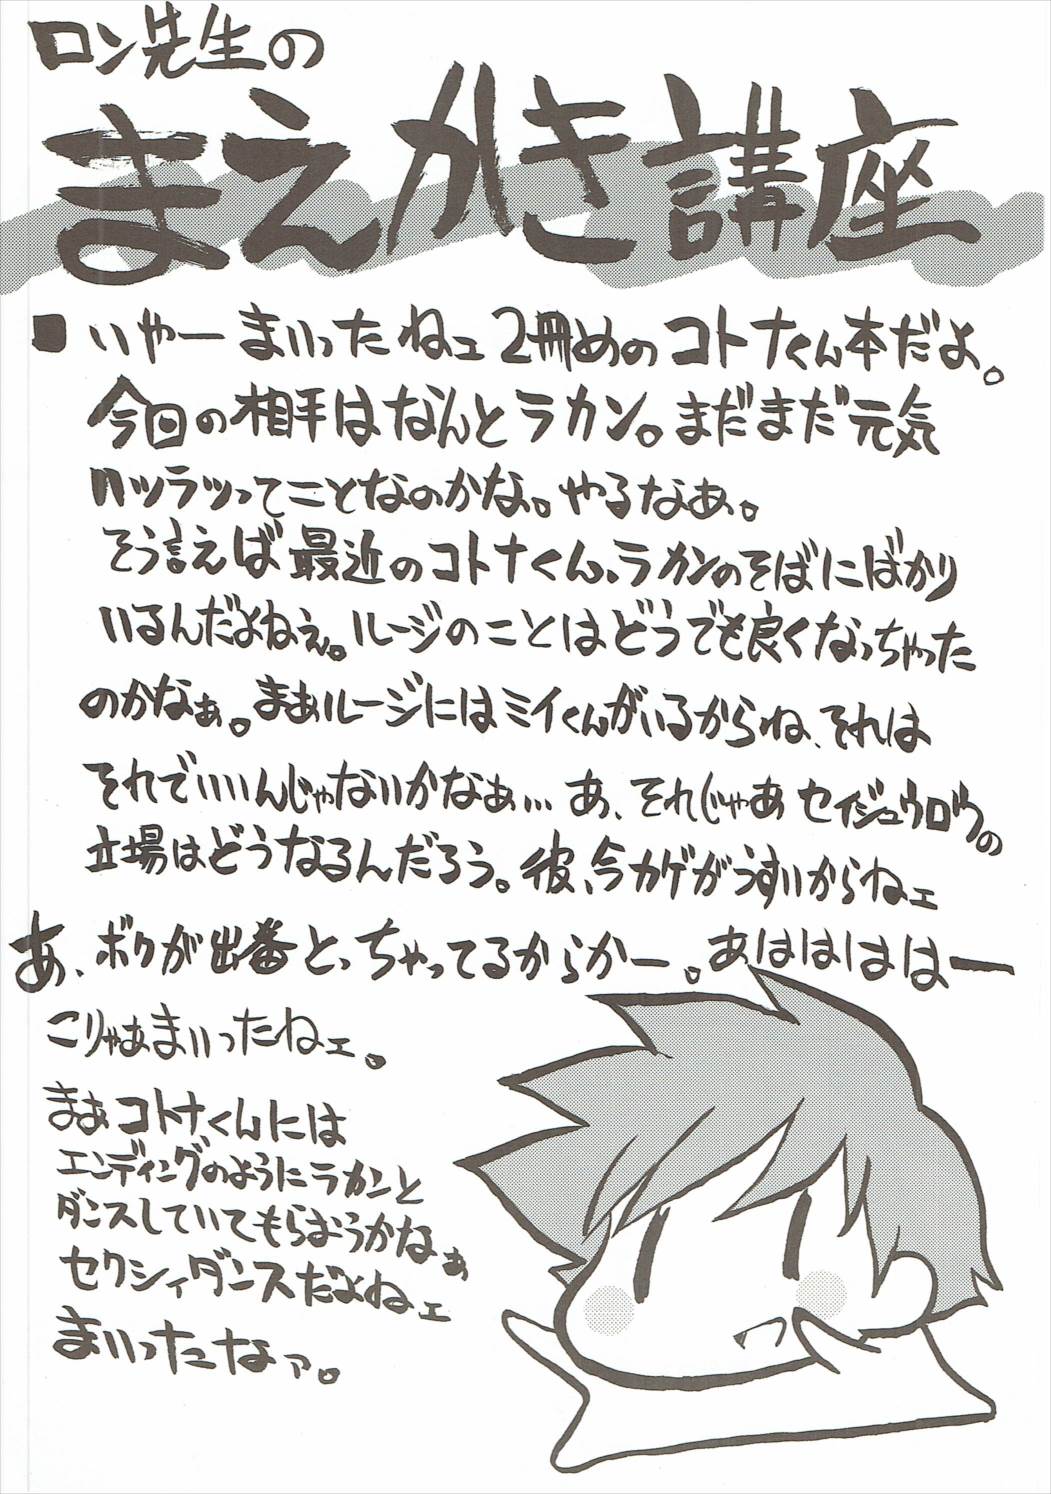 ロン先生の
まえかき講座
■いやーまいったねェ2冊めのコトナくん本だよ。
今回の相手はなんとラカン。まだまだ元気
ハツラツってことなのかな。やるなあ。
そう言えば最近のコトナくん、ラカンのそばにばかり
いるんだよねぇ。ルージのことはどうでも良くなっちゃった
のかなぁ。まあルージにはミイくんがいるからね、それは
それでいいんじゃないかなぁ…あ、それじゃあセイジュウロウの
立場はどうなるんだろう。彼、今カゲがうすいからねェ
あ、ボクが出番とっちゃってるからかー。あははははー
こりゃあまいったねェ。
まあコトナくんには
エンディングのようにラカンと
ダンスしていてもらおうかなぁ
セクシィダンスだよねェ
まいったなァ。